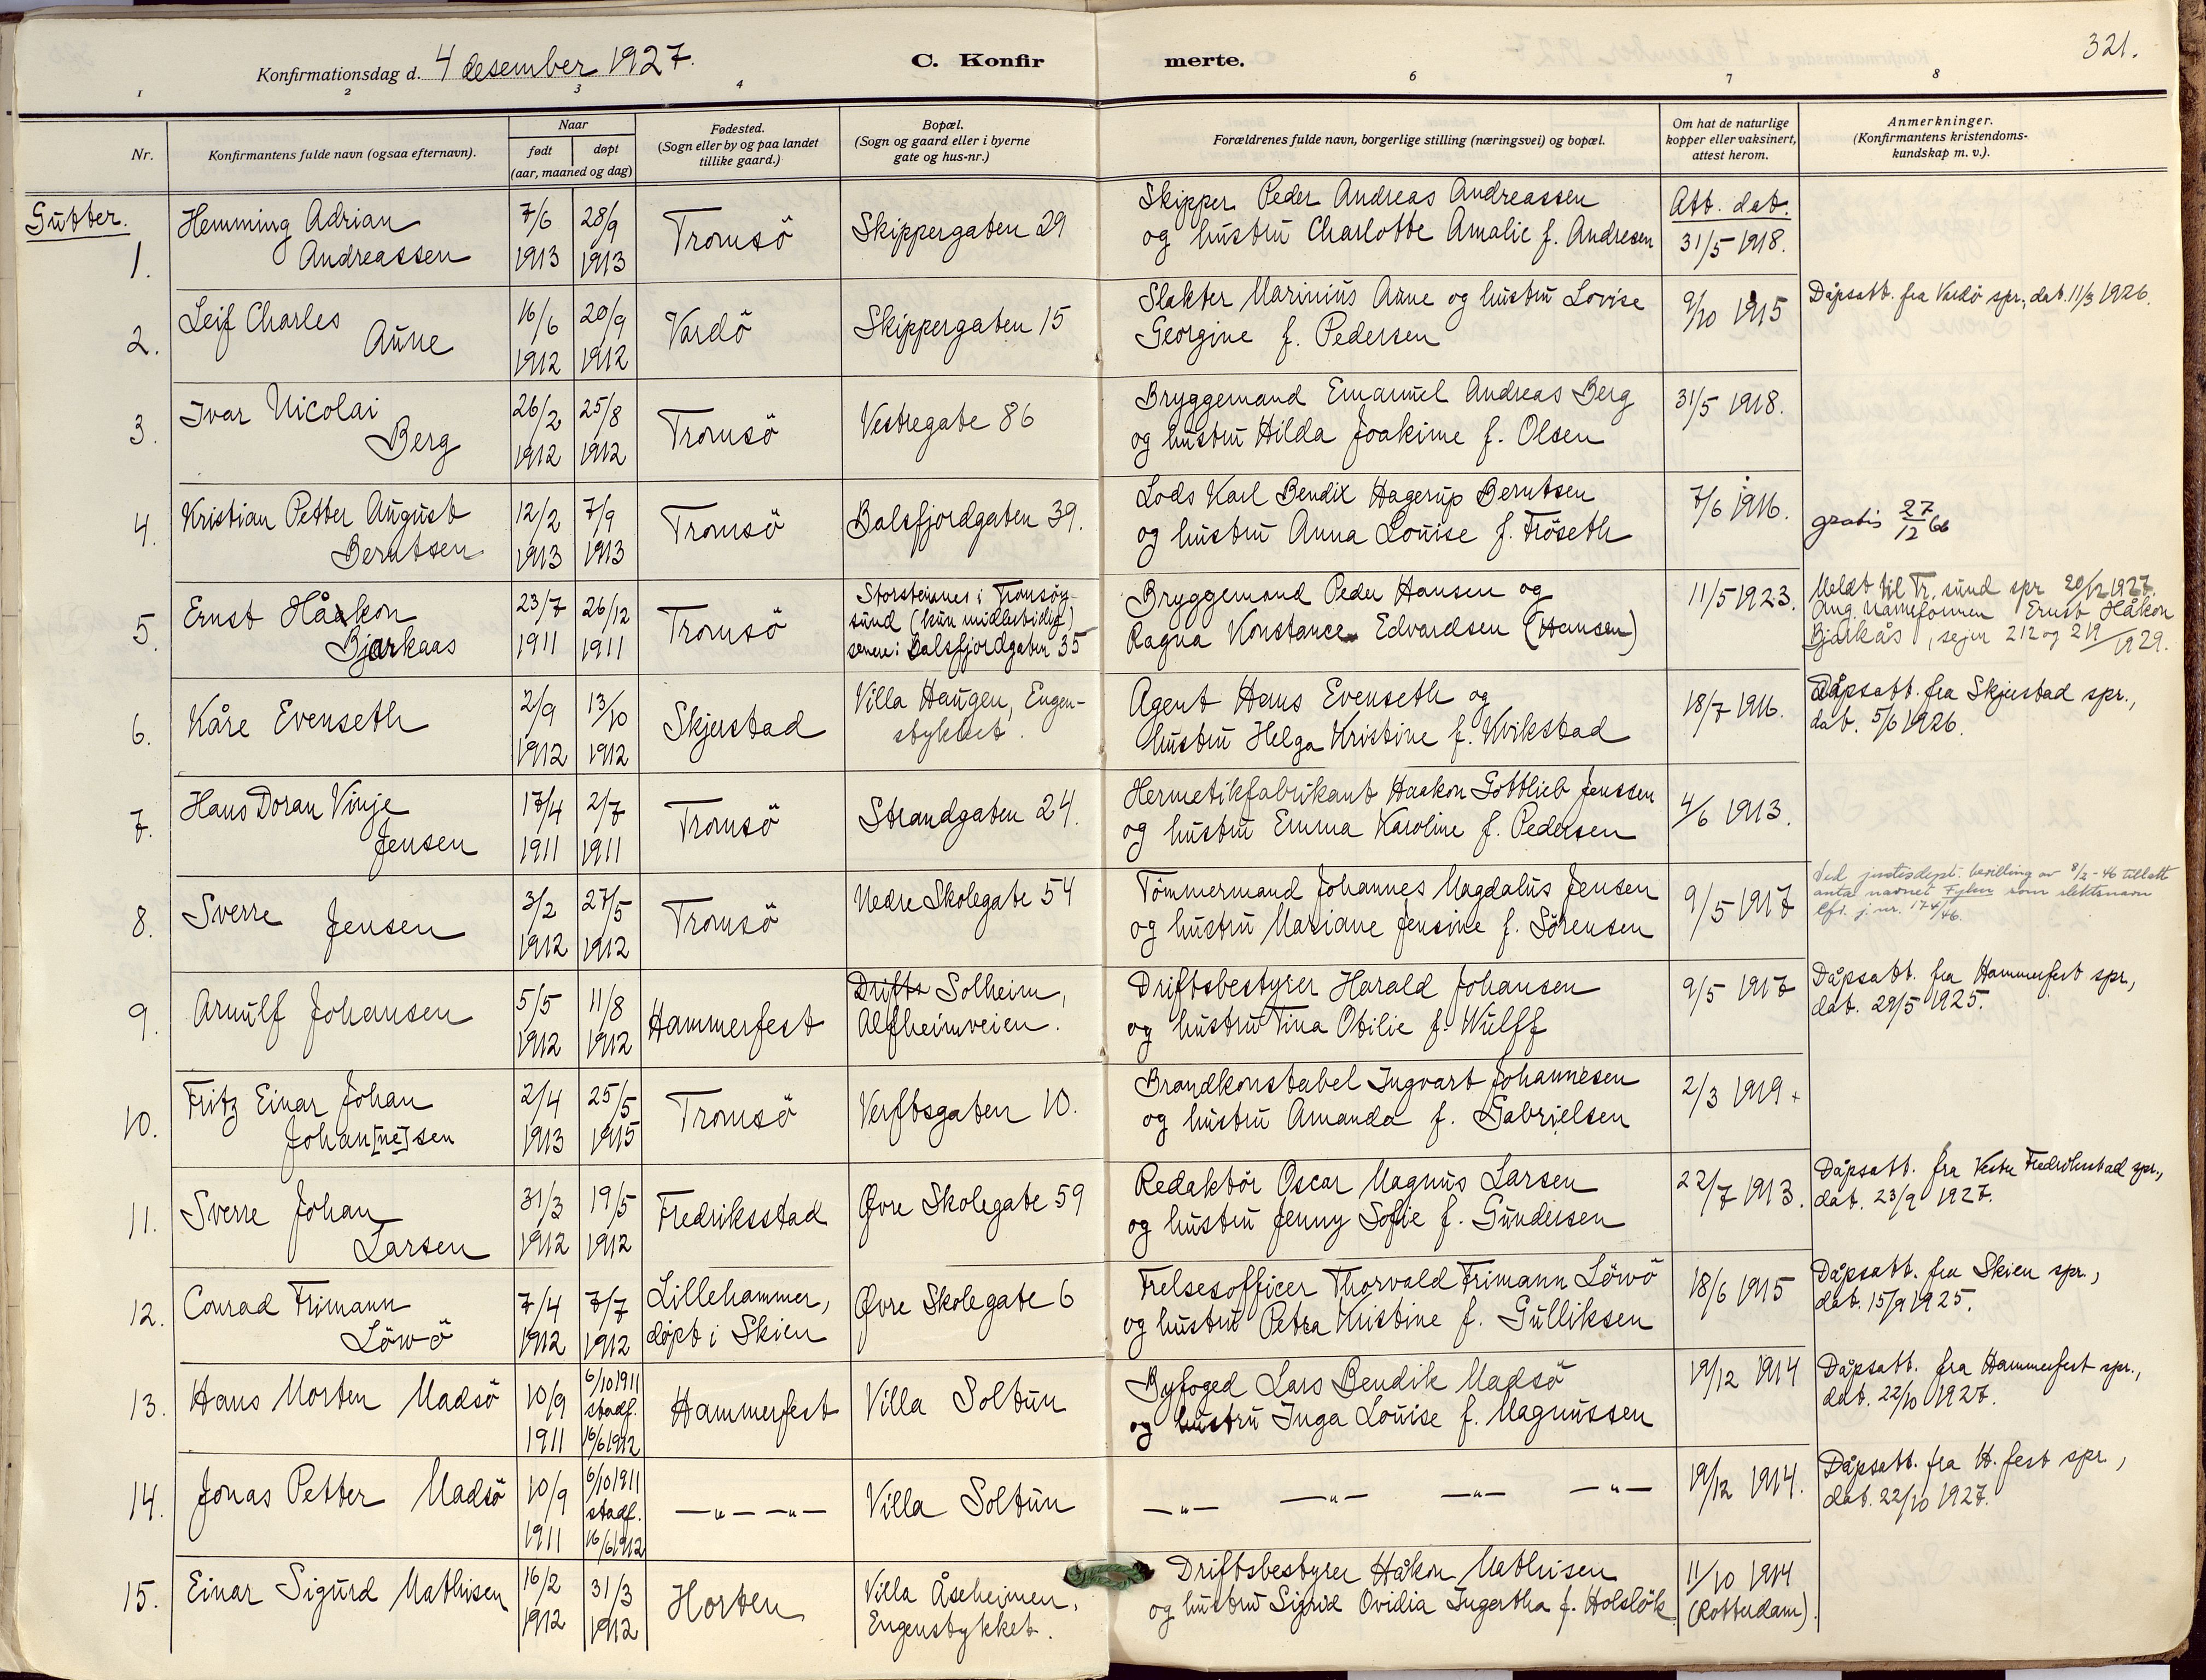 Konfirmationsdag d. 4 desember 1927.
C. Konfir
merte.
321.
1 2 3 4 6 7 8
Nr.
Konfirmantens fulde navn (ogsaa efternavn).
Naar
født døpt
(aar, maaned og dag)
Fødested.
(Sogn eller by og paa landet
tillike gaard.)
Bopæl.
(Sogn og gaard eller i byerne
gate og hus-nr.)
Forældrenes fulde navn, borgerlige stilling (næringsvei) og bopæl.
Om hat de naturlige
kopper eller vaksinert,
attest herom.
Anmerkninger.
(Konfirmantens kristendoms-
kundskap m. v.).
Gutter.
1.
Hemming Adrian
Andreassen
7/6 1913
28/9 1913
Tromsö
Skippergaten 29
Skipper Peder Andreas Andreassen
og hustru Charlotte Amalie f. Andresen
Att. dat.
31/5 1918.
2.
Leif Charles
Aune
16/6 1912
20/9 1912
Vardö
Skippergaten 15
Slakter Marinius Aune og hustru Lovise
Georgine f. Pedersen
9/10 1915
Dåpsatt. fra Vardö spr., dat. 11/3 1926.
3.
Ivar Nicolai
Berg
26/2 1912
25/8 1912
Tromsö
Vestregate 86
Bryggemand Emanuel Andreas Berg
og hustru Hilda Joakime f. Olsen
31/5 1918.
4.
Kristian Petter August
Berntsen
12/2 1913
7/9 1913
Tromsö
Balsfjordgaten 39.
Lods Karl Bendix Hagerup Berntsen
og hustru Anna Louise f. Fröseth
7/6 1916.
gratis 27/12 66
5.
Ernst Håakon
Bjarkaas
23/7 1911
26/12 1911
Tromsö
Storsteinnes i Tromsöy-
sund (kun midlertidig)
senere: Balsfjordgaten 35
Bryggemand Peder Hansen og
Ragna Konstance Edvardsen (Hansen)
11/5 1923.
Meldt til Tr. sund spr 20/12 1927.
Ang. navneformen Ernst Håkon
Bjarkås, se jnr 212 og 219/1929.
6.
Kåre Evenseth
2/9 1912
13/10 1912
Skjerstad
Villa Haugen, Engen-
stykket.
Agent Hans Evenseth og
hustru Helga Kristine f. Kvikstad
18/7 1916.
Dåpsatt. fra Skjerstad spr.,
dat. 5/6 1926.
7.
Hans Doran Vinje
Jensen
17/4 1911
2/7 1911
Tromsö
Strandgaten 24.
Hermetikfabrikant Haakon Gottlieb Jenssen
og hustru Emma Karoline f. Pedersen
4/6 1913.
8.
Sverre Jensen
3/2 1912
27/5 1912
Tromsö
Nedre Skolegate 54
Tömmermand Johannes Magdalus Jensen
og hustru Mariane Jensine f. Sörensen
9/5 1917
Ved justisdept. bevilling av 8/2-46 tillatt
anta navnet Fylen som slektsnavn
Cfr. j. nr. 174/46.
9.
Arnulf Johansen
5/5 1912
11/8 1912
Hammerfest
Drifts Solheim,
Alfheimveien.
Driftsbestyrer Harald Johansen
og hustru Tina Otilie f. Wulff
9/5 1917
Dåpsatt. fra Hammerfest spr.,
dat. 29/5 1925.
10.
Fritz Einar Johan
Johan[ne]sen
2/4 1913
25/5 1915
Tromsö
Verftsgaten 10.
Brandkonstabel Ingvart Johannesen
og hustru Amanda f. Gabrielsen
2/3 1919
11.
Sverre Johan
Larsen
31/3 1912
19/5 1912
Fredriksstad
Øvre Skolegate 59
Redaktör Oscar Magnus Larsen
og hustru Jenny Sofie f. Gundersen
22/7 1913.
Dåpsatt. fra Vestre Fredrikstad spr.,
dat. 23/9 1927.
12.
Conrad Frimann
Löwö
7/4 1912
7/7 1912
Lillehammer,
döpt i Skien
Øvre Skolegate 6
Frelsesofficer Thorvald Frimann Löwö
og hustru Petra Kristine f. Gulliksen
18/6 1915
Dåpsatt. fra Skien spr.,
dat. 15/9 1925.
13.
Hans Morten Madsö
10/9 1911
6/10 1911
stadf.
16/6 1912
Hammerfest
Villa Soltun
Byfoged Lars Bendik Madsö
og hustru Inga Louise f. Magnussen
19/12 1914
Dåpsatt. fra Hammerfest spr.,
dat. 22/10 1927.
14.
Jonas Petter Madsö
10/9 1911
6/10 1911
stadf.
16/6 1912
—"— —"—
Villa Soltun
—"— —"— —"— —"—
19/12 1914.
Dåpsatt. fra H.fest spr.,
dat. 22/10 1927.
15.
Einar Sigurd Mathisen
16/2 1912
31/3 1912
Horten
Villa Åseheimen,
Engenstykket.
Driftsbestyrer Håkon Mathisen
og hustru Sigrid Ovidia Ingertha f. Holslök
11/10 1914
(Rotterdam).